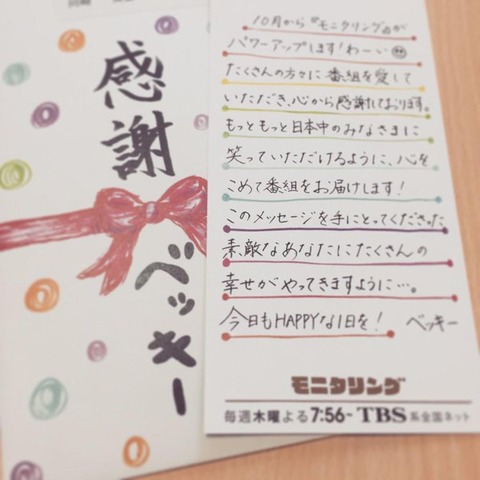 感謝
ベッキー
10月から『モニタリング』が
パワーアップします!わーい
たくさんの方々に番組を愛して
いただき、心から感謝しております。
もっともっと日本中のみなさまに
笑っていただけるように、心を
こめて番組をお届けします!
このメッセージを手にとってくださった
素敵なあなたにたくさんの
幸せがやってきますように…。
今日もHAPPYな1日を! ベッキー
モニタリング
毎週木曜よる7:56~ TBS系全国ネット